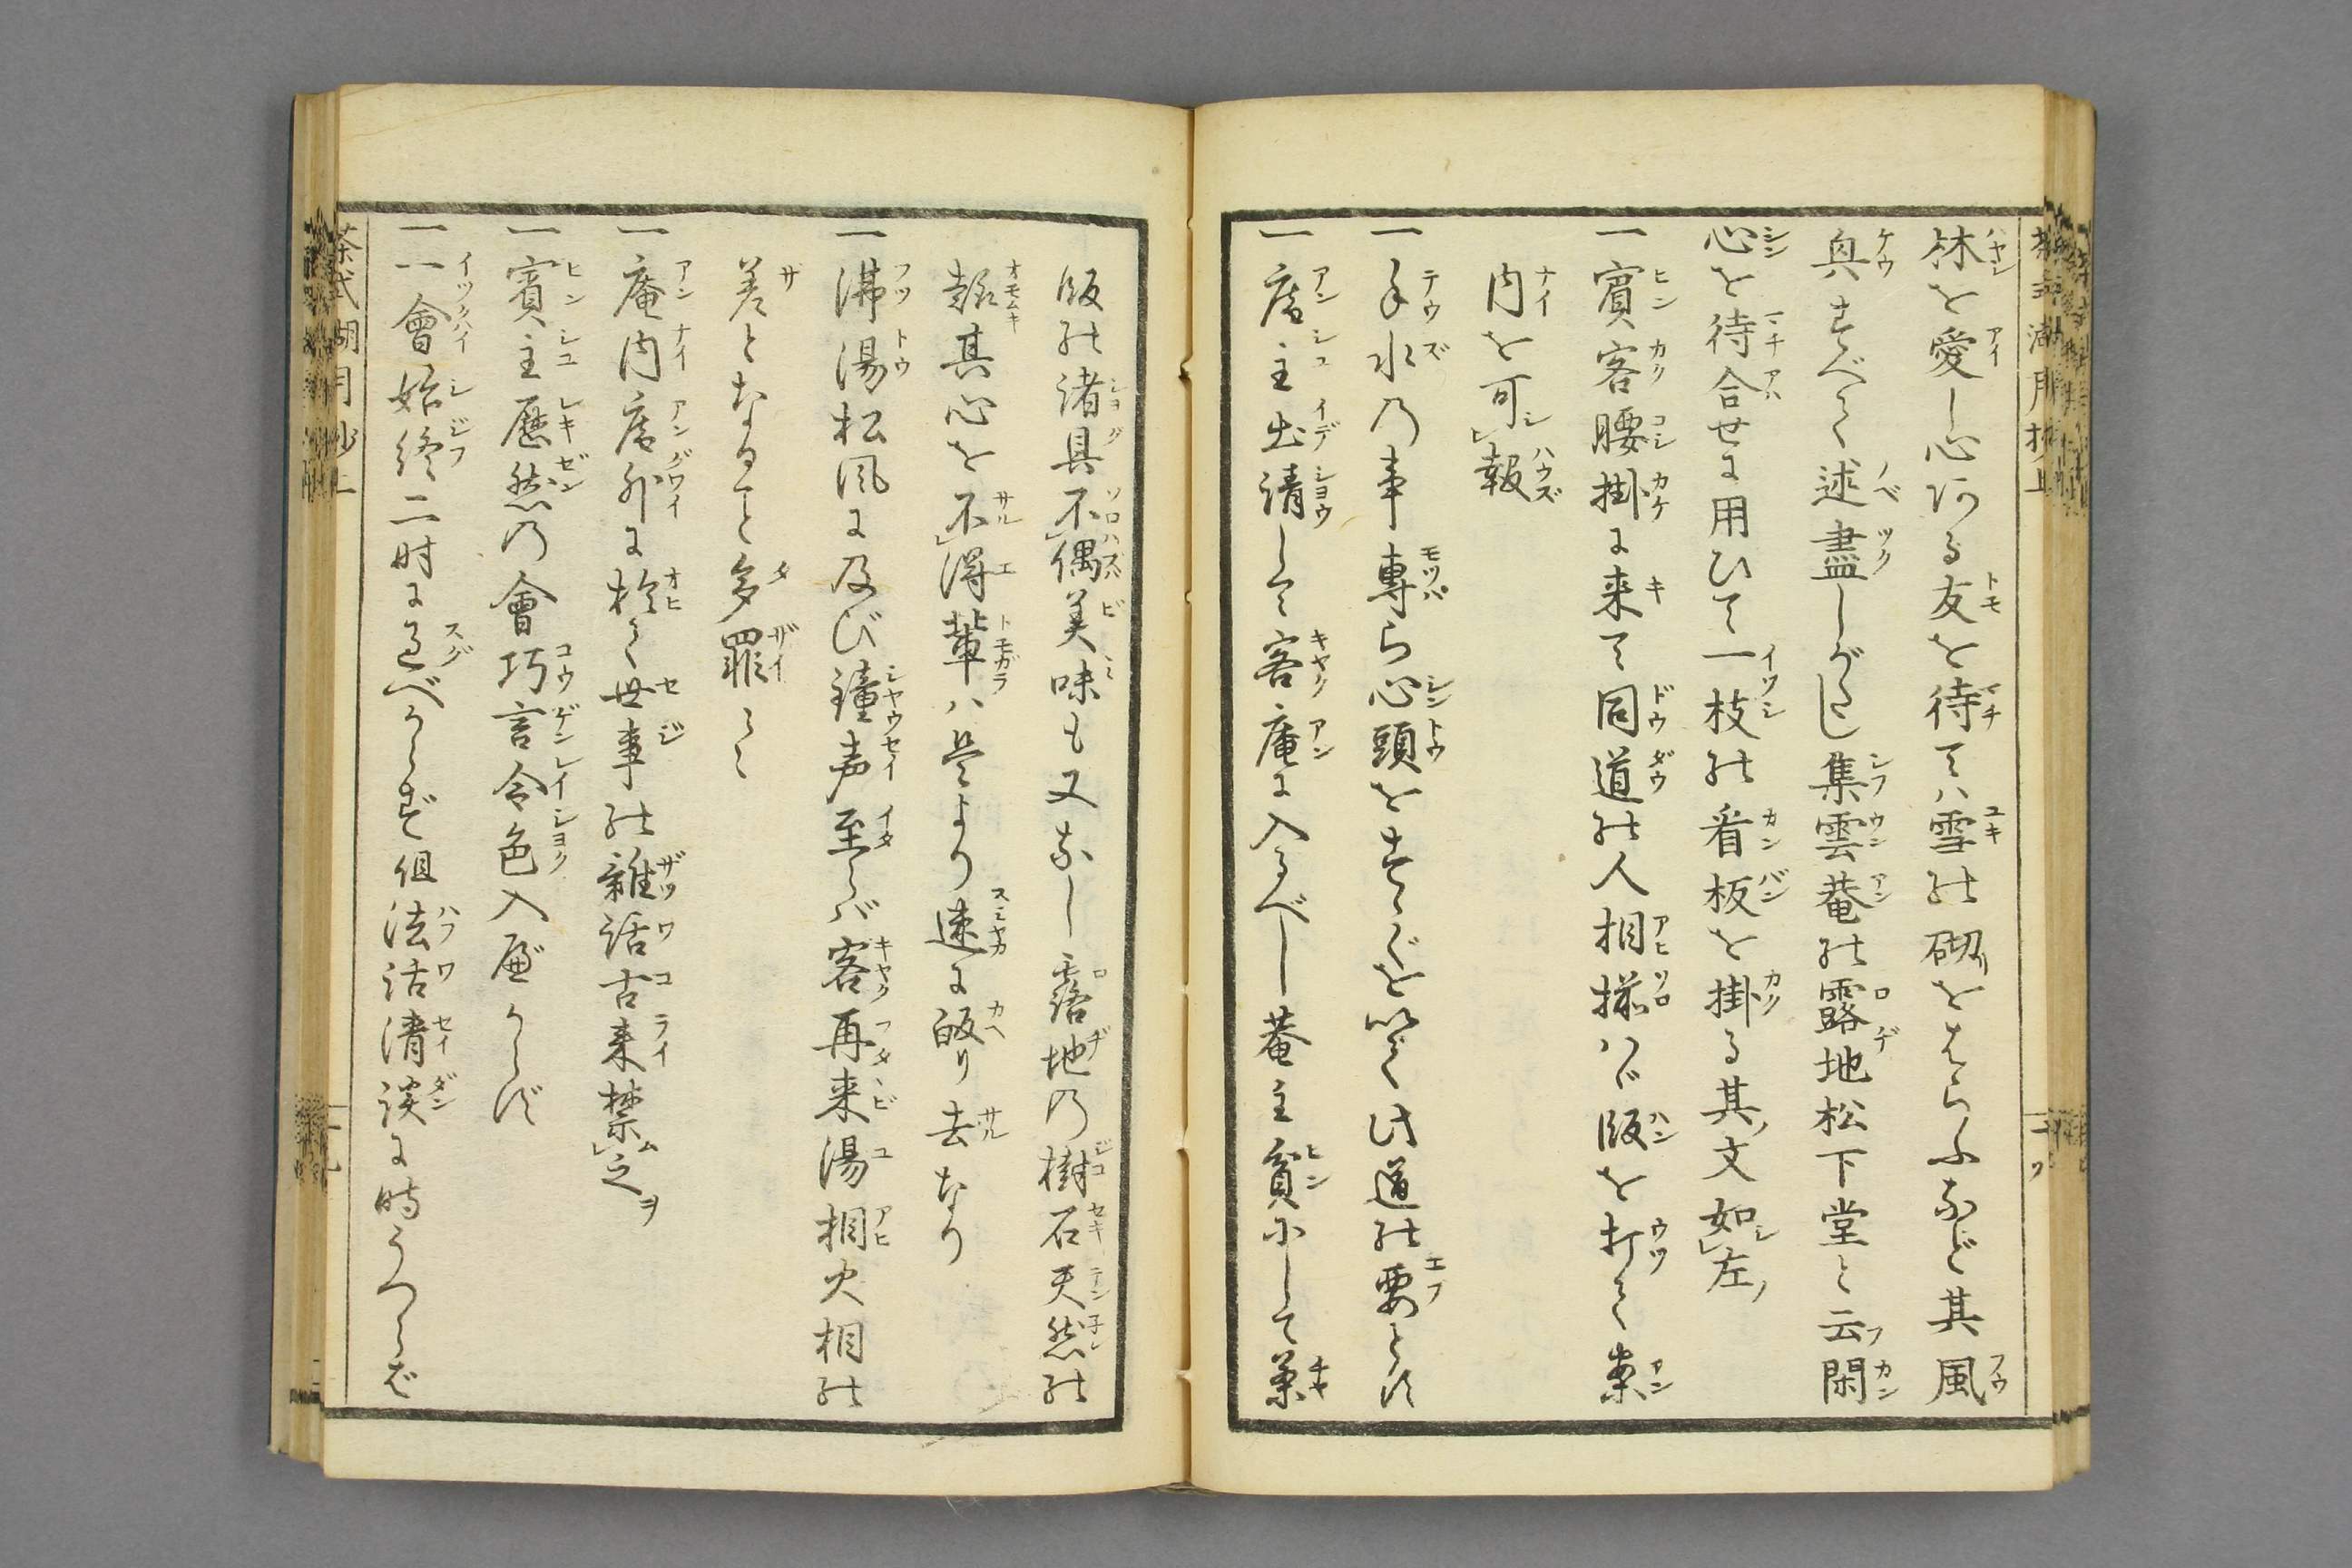 林を愛し心ある友を待てハ雪の砌りをもらふなど其風
興すべて述盡しがたし集雲菴の露地松下堂と云フ閑
心を待合せに用ひて一枝の看板を掛る其ノ文如シ左ノ
一賓客腰掛に来て同道の人相揃ハヾ版を打て案
内を可シ報ズ
一手水の事専ら心頭をすゝぐを以て此道の要とす
一庵主出請して客庵に入るべし菴主貧にして茶
飯の諸具不偶美味も又なし露地の樹石天然の
趣其心を不得輩ハ是より速に皈り去なり
一沸湯松風に及び鐘声至らバ客再来湯相火相の
差となること多罪〻〻
一庵内庵外に於て世事の雑話古来禁ム之ヲ
一賓主歴然の會巧言令色入べからず
一一會始終二時に過べからず但法話清談に時うつらば
茶式湖月抄上